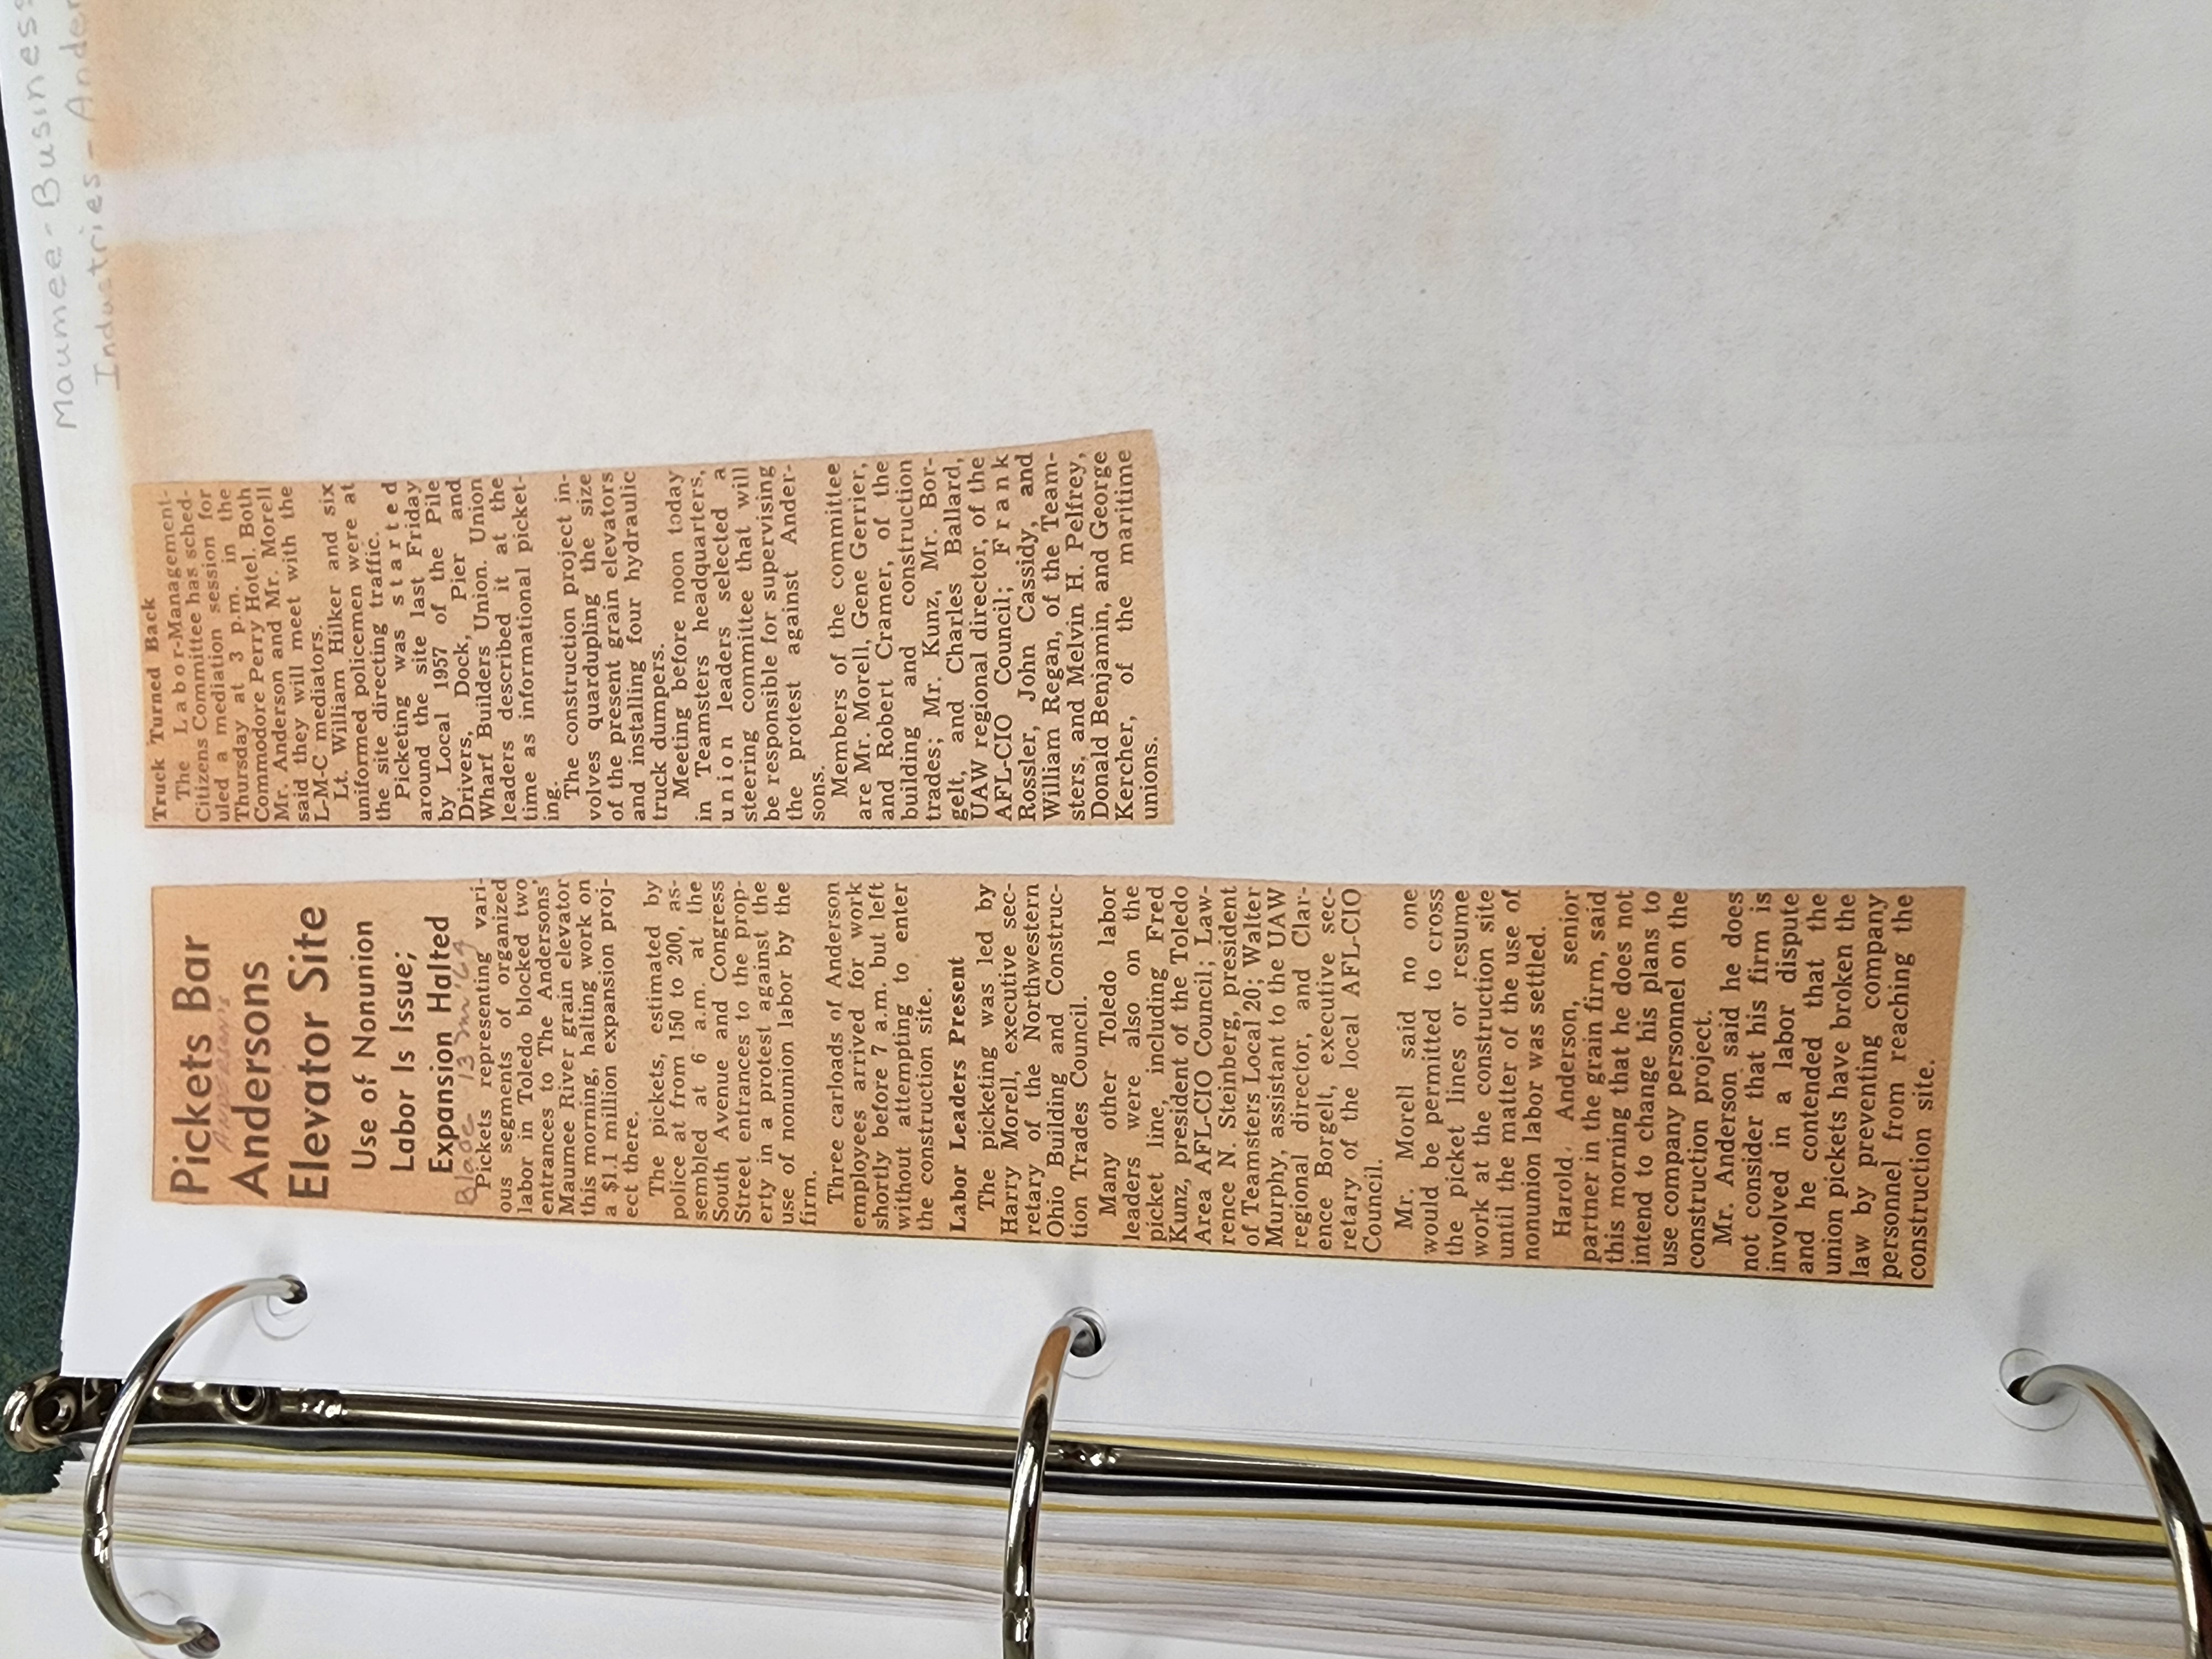 Maumee - Business
Industries - Ander
Pickets Bar
Anderson's
Andersons
Elevator Site
Use of Nonunion
Labor Is Issue;
Expansion Halted
Blade 13
Pickets representing vari-
ous segments of organized
labor in Toledo blocked two
entrances to The Andersons'
Maumee River grain elevator
this morning, halting work on
a $1.1 million expansion proj-
ect there.
The pickets, estimated by
police at from 150 to 200, as-
sembled at 6 a.m. at the
South Avenue and Congress
Street entrances to the prop-
erty in a protest against the
use of nonunion labor by the
firm.
Three carloads of Anderson
employees arrived for work
shortly before 7 a.m. but left
without attempting to enter
the construction site.
Labor Leaders Present
The picketing was led by
Harry Morell, executive sec-
retary of the Northwestern
Ohio Building and Construc-
tion Trades Council.
Many other Toledo labor
leaders were also on the
picket line, including Fred
Kunz, president of the Toledo
Area AFL-CIO Council; Law-
rence N. Steinberg, president
of Teamsters Local 20; Walter
Murphy, assistant to the UAW
regional director, and Clar-
ence Borgelt, executive sec-
retary of the local AFL-CIO
Council.
Mr. Morell said no one
would be permitted to cross
the picket lines or resume
work at the construction site
until the matter of the use of
nonunion labor was settled.
Harold Anderson, senior
partner in the grain firm, said
this morning that he does not
intend to change his plans to
use company personnel on the
construction project.
Mr. Anderson said he does
not consider that his firm is
involved in a labor dispute
and he contended that the
union pickets have broken the
law by preventing company
personnel from reaching the
construction site.
Truck Turned Back
The Labor-Management-
Citizens Committee has sched-
uled a mediation session for
Thursday at 3 p.m. in the
Commodore Perry Hotel. Both
Mr. Anderson and Mr. Morell
said they will meet with the
L-M-C mediators.
Lt. William Hilker and six
uniformed policemen were at
the site directing traffic.
Picketing was started
around the site last Friday
by Local 1957 of the Pile
Drivers, Dock, Pier and
Wharf Builders Union. Union
leaders described it at the
time as informational picket-
ing.
The construction project in-
volves quardupling the size
of the present grain elevators
and installing four hydraulic
truck dumpers.
Meeting before noon today
in Teamsters headquarters,
union leaders selected a
steering committee that will
be responsible for supervising
the protest against Ander-
sons.
Members of the committee
are Mr. Morell, Gene Gerrier,
and Robert Cramer, of the
building and construction
trades; Mr. Kunz, Mr. Bor-
gelt, and Charles Ballard,
UAW regional director, of the
AFL-CIO Council; Frank
Rossler, John Cassidy, and
William Regan, of the Team-
sters, and Melvin H. Pelfrey,
Donald Benjamin, and George
Kercher, of the maritime
unions.